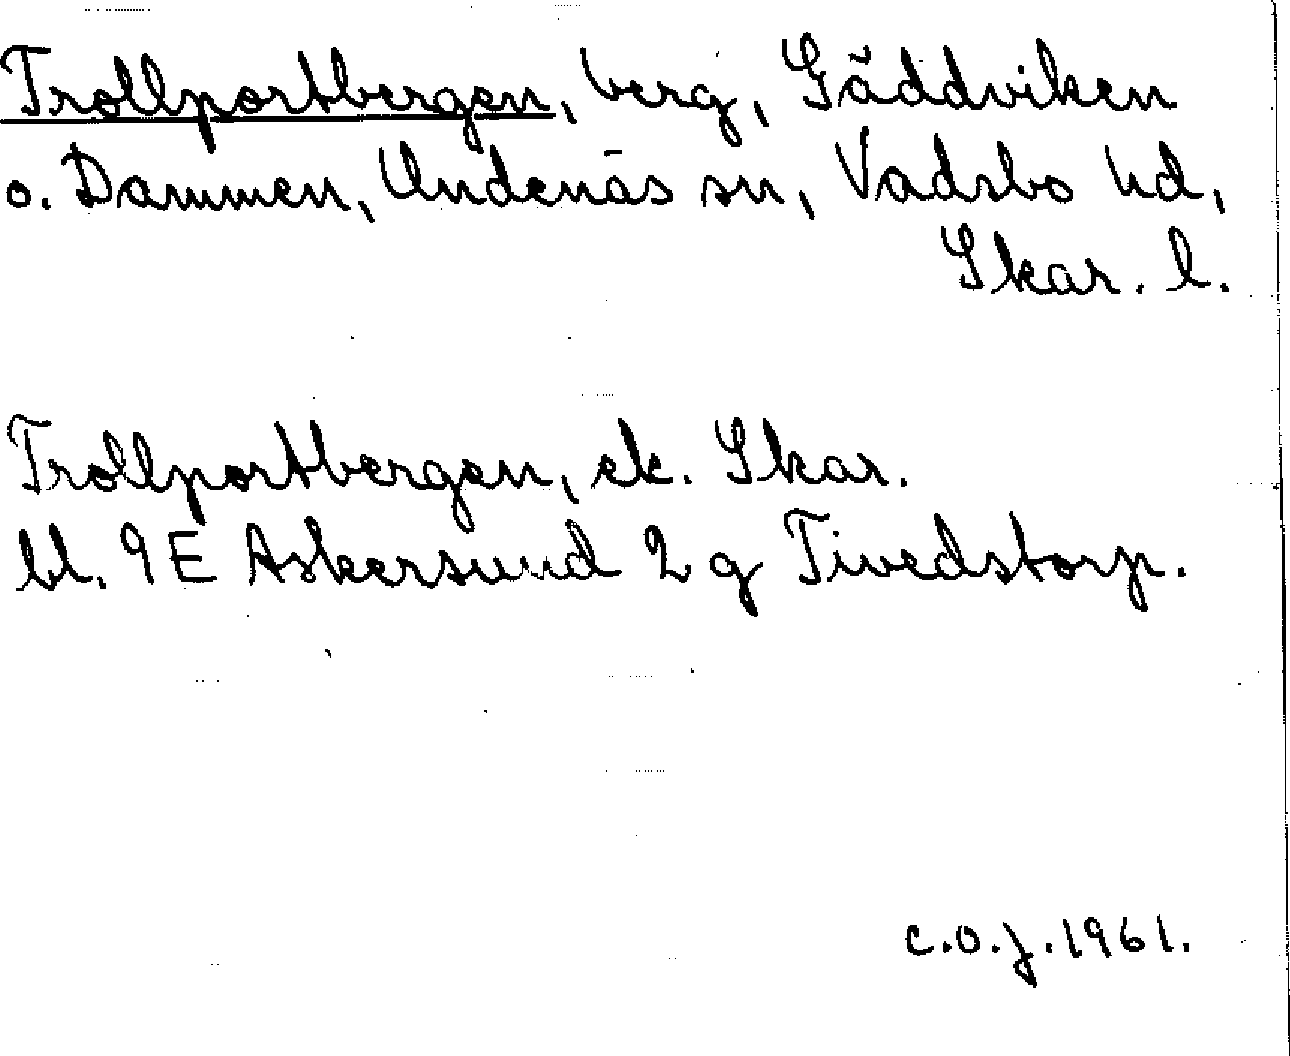 Trollportbergen, berg, Gäddviken
o. Dammen, Undenäs sn, Vadsbo hd,
Skar. l.
Trollportbergen, ek. Skar.
bl. 9E Askersund 2 g Tivedstorp.
C.O.J. 1961.